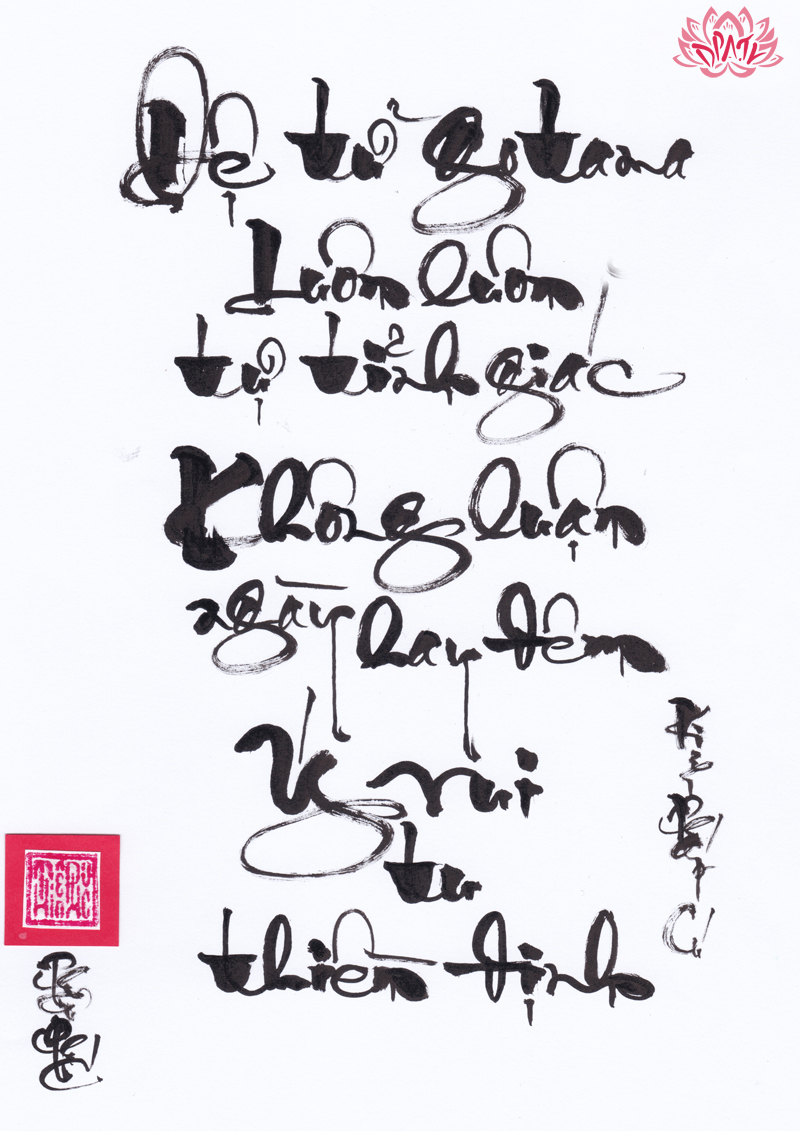 DPATK
Đệ tử Gotama
Luôn luôn
tự tỉnh giác
Không luận
ngày hay đêm
Ý vui
tu
thiền định